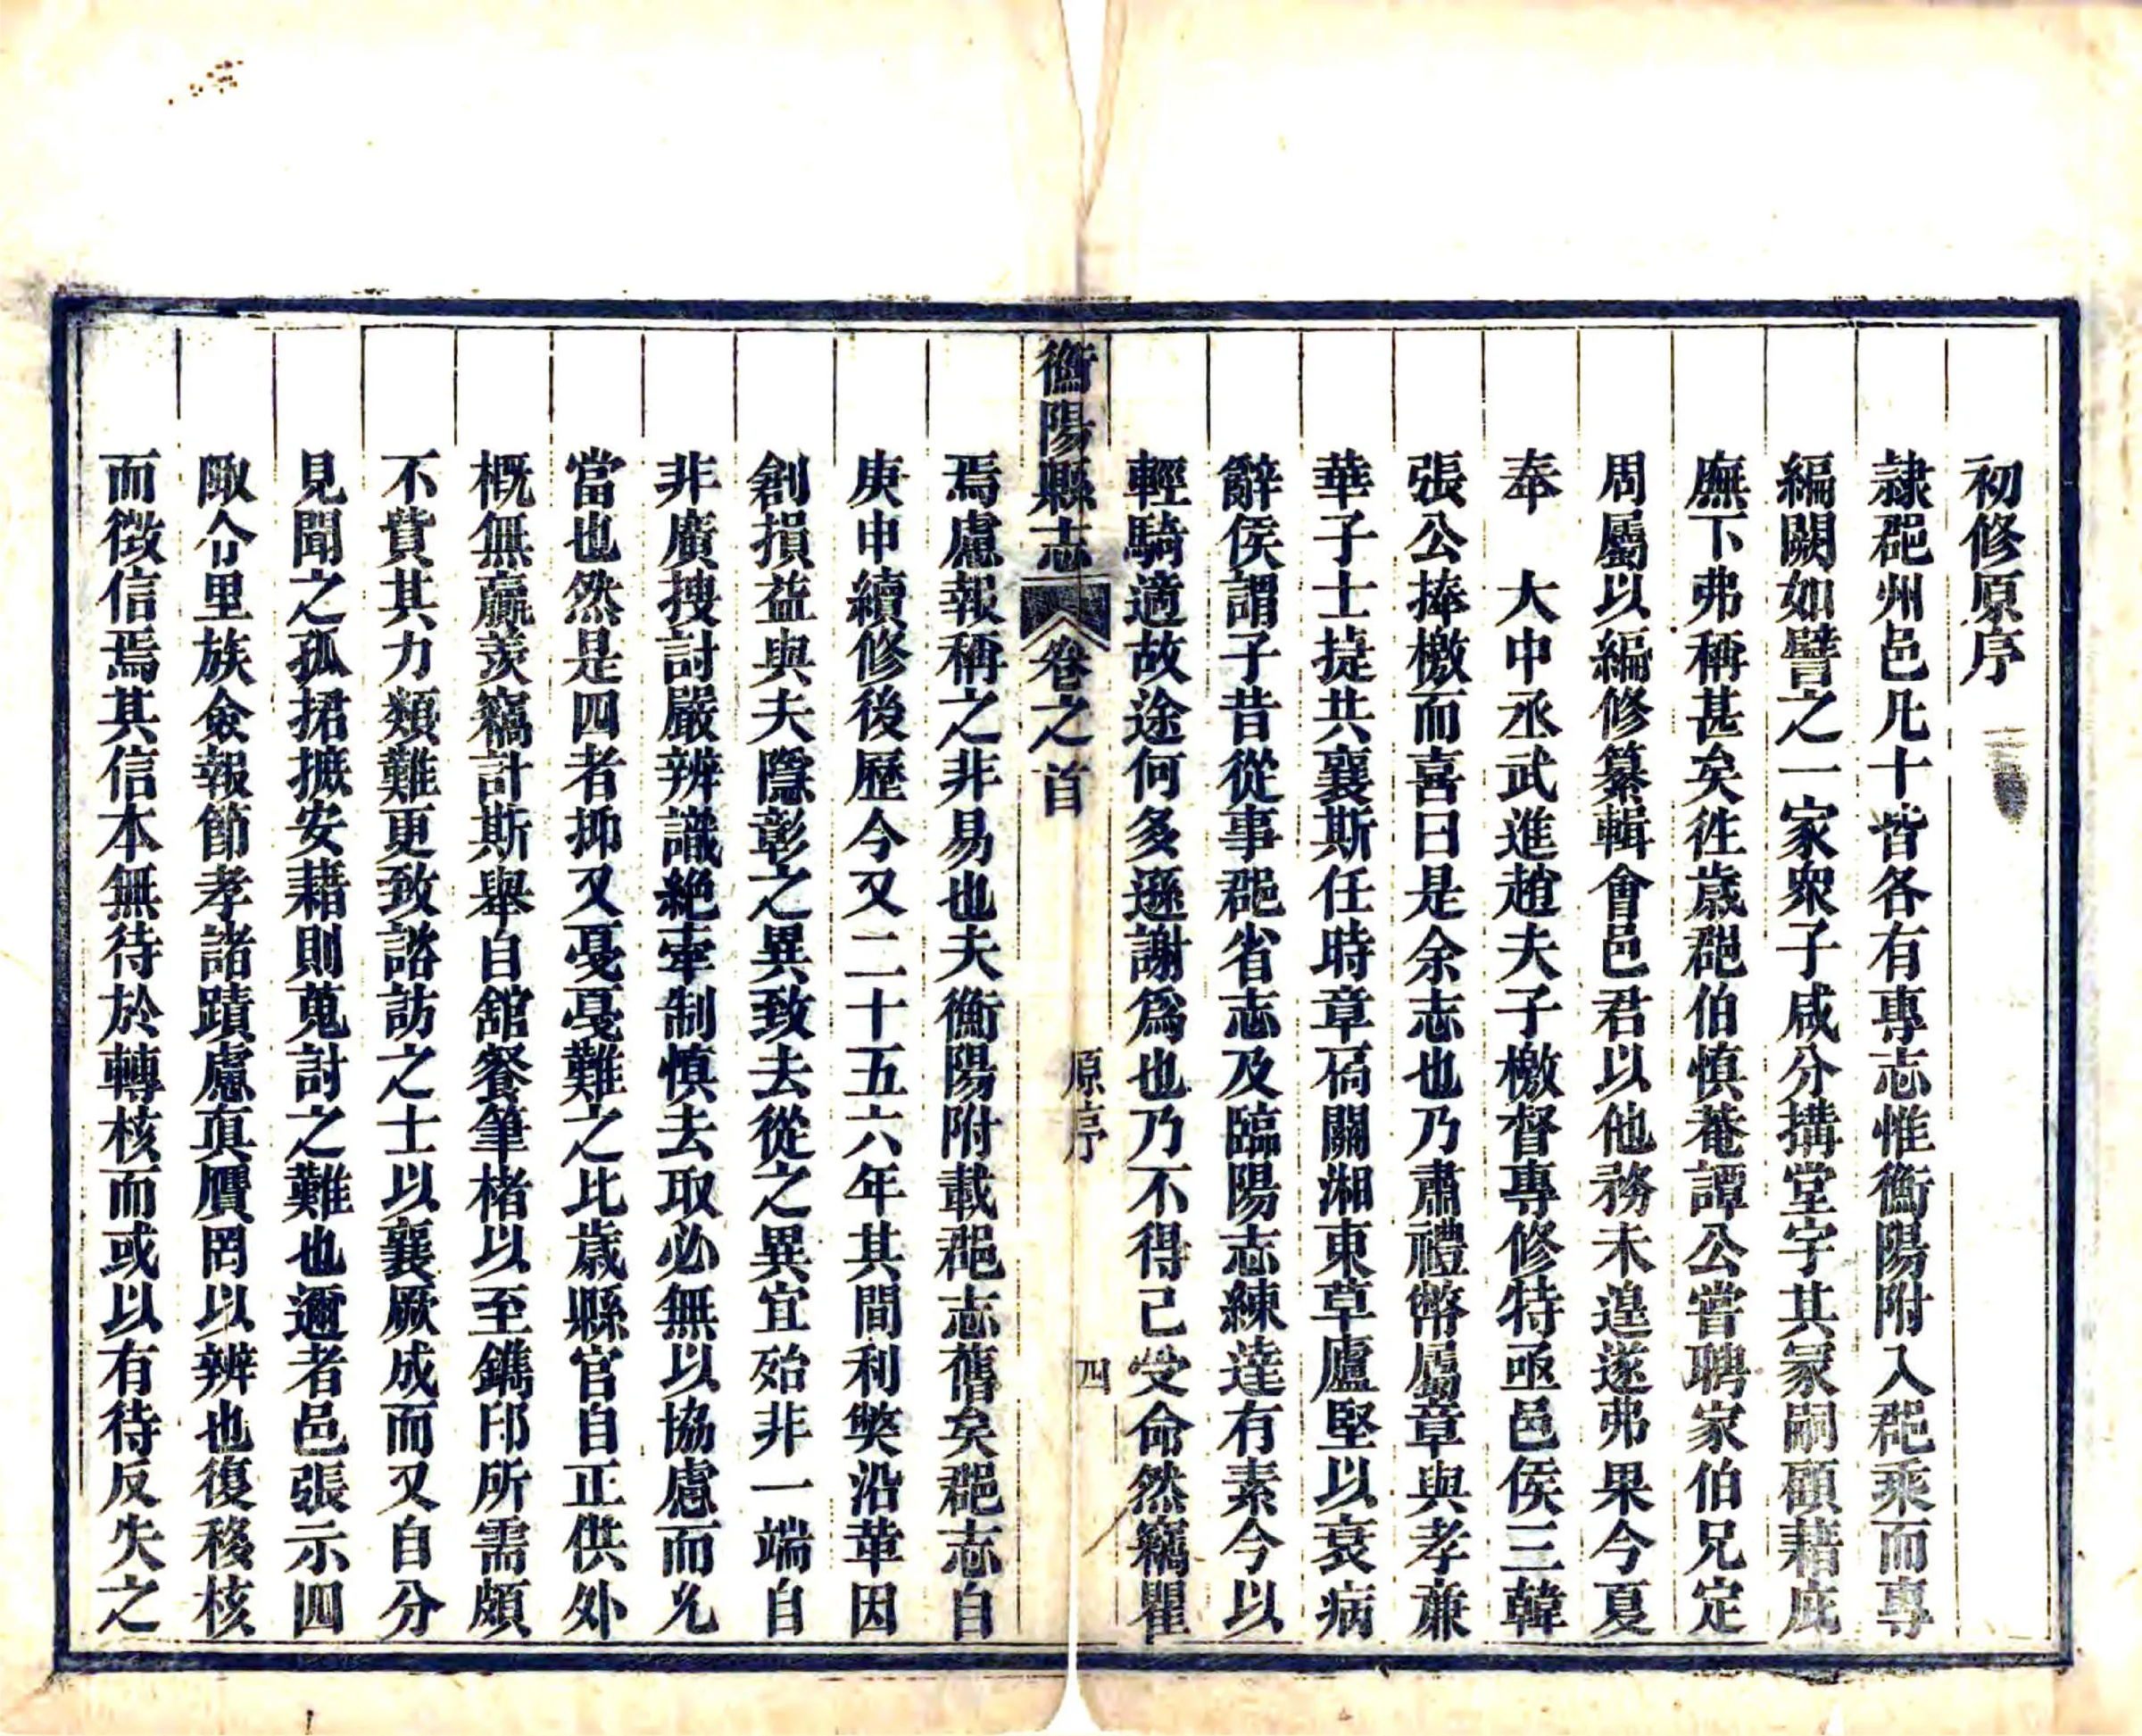 初修原序
隷郡州邑凡十皆各有專志惟衡陽附入郡乘而專
編闕如譬之一家衆子咸分搆堂宇其冢嗣顧藉庇
廡下弗稱甚矣徃歲郡伯慎菴譚公嘗聘家伯兄定
周屬以編修纂輯會邑君以他務未遑遂弗果今夏
奉　大中丞武進趙夫子檄督專修特亟邑侯三韓
張公捧檄而喜曰是余志也乃肅禮幣屬章與孝亷
華子士㨗共襄斯任時章扃關湘東草廬堅以衰病
辭侯謂子昔從事郡省志及臨陽志練達有素今以
輕騎適故途何多遜謝爲也乃不得已受命然竊瞿
衡陽縣志　卷之首　原序　四
焉慮報稱之非易也夫衡陽附載郡志舊矣郡志自
庚申續修後歷今又二十五六年其間利獘沿革因
創損益與夫隱彰之異致去從之異宜殆非一端自
非廣搜討嚴辨識絶牽制慎去取必無以協慮而允
當也然是四者抑又戞戞難之比歲縣官自正供外
概無羸羡竊計斯舉自舘餐筆楮以至鐫印所需頗
不貲其力類難更致諮訪之士以襄厥成而又自分
見聞之孤捃摭安藉則蒐討之難也邇者邑張示四
陬令里族僉報節孝諸蹟慮真贋罔以辨也復移核
而徴信焉其信本無待於轉核而或以有待反失之